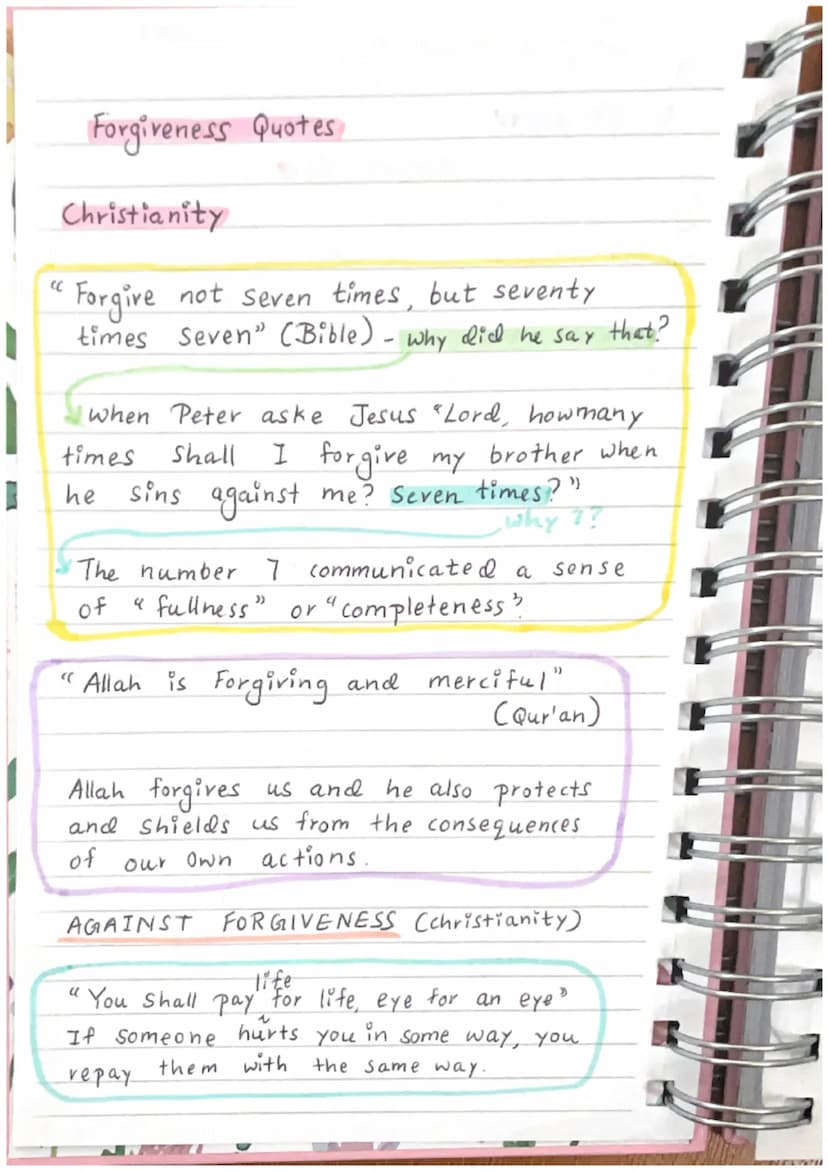 Forgiveness Quotes
Christianity
“Forgive not seven times, but seventy
times seven” (Bible) - why did he say that?
when Peter aske Jesus “Lord, howmany
times shall I forgive my brother when
he sins against me? Seven times?”
why ??
The number 7 communicated a sense
of “fullness” or “completeness”.
“Allah is Forgiving and merciful”
(Qur'an)
Allah forgives us and he also protects
and shields us from the consequences
of our own actions.
AGAINST FORGIVENESS (christianity)
“You shall pay life for life, eye for an eye”
If someone hurts you in some way, you
repay them with the same way.